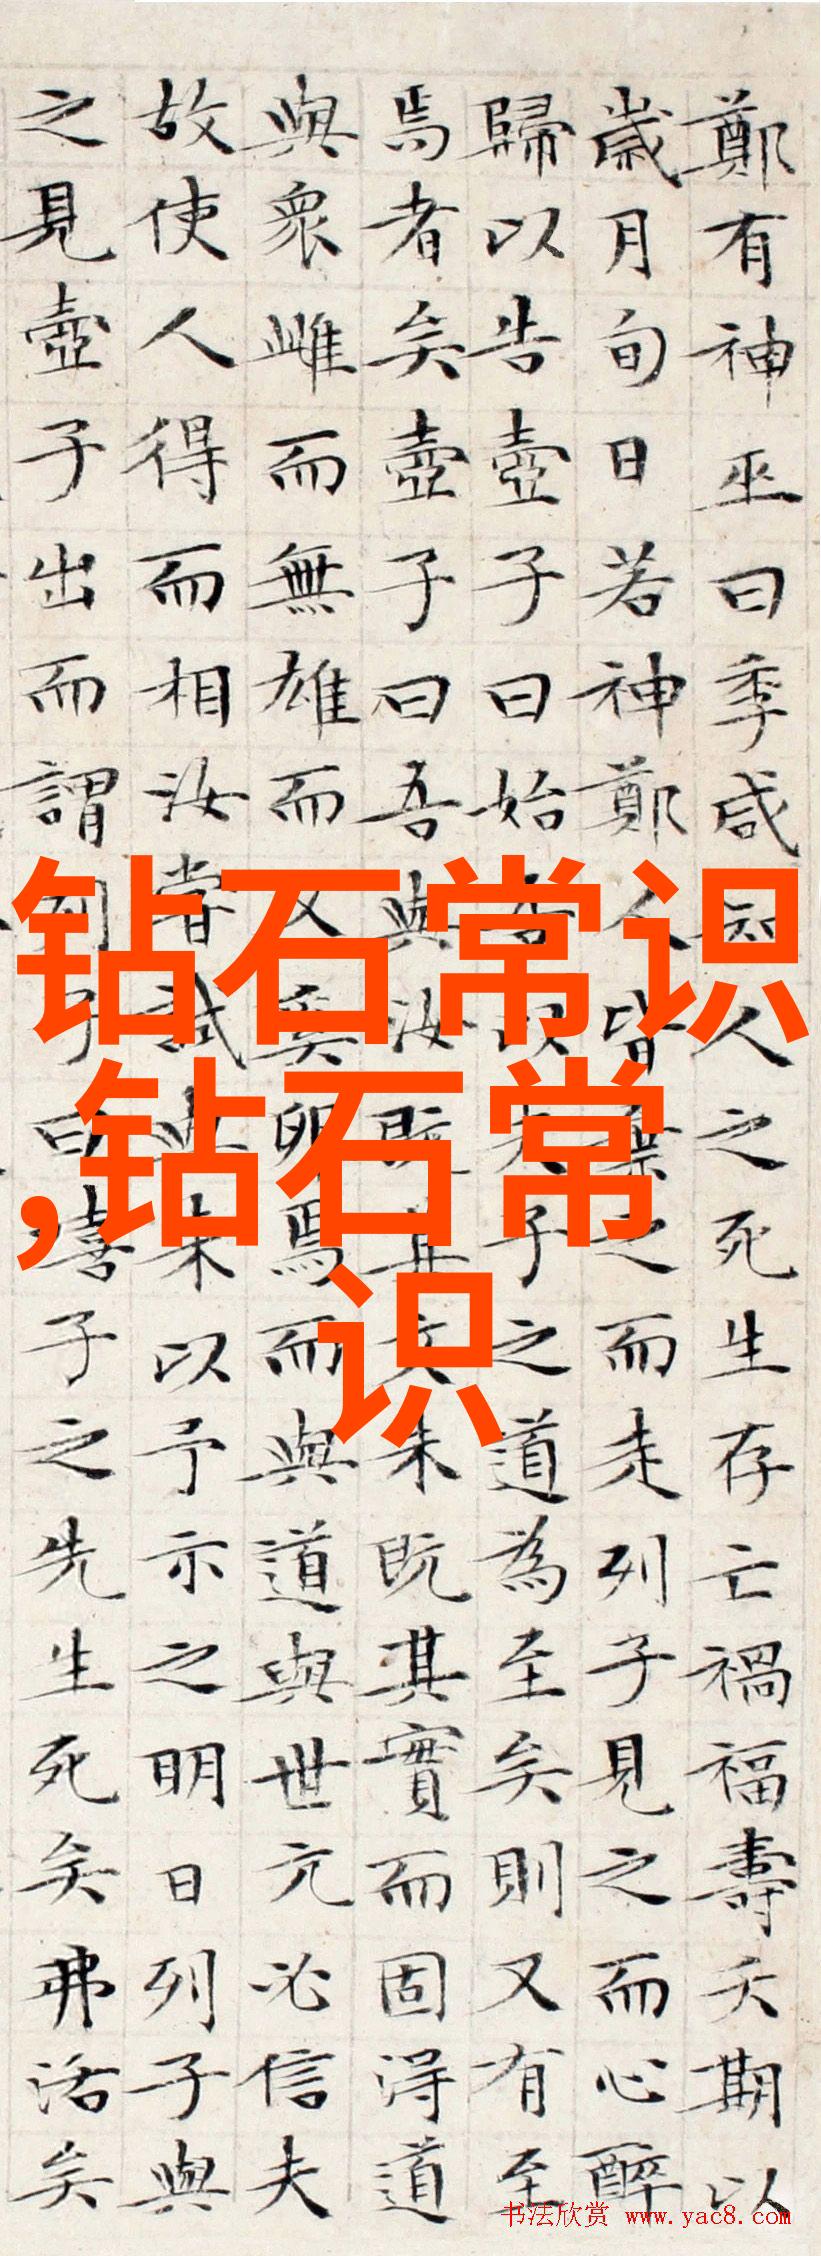 鄭有神巫曰季咸知人之死生存亡禍福壽夭期以
歲月旬日若神鄭人皆棄之而走列子見之而心醉
歸以告壺子曰始吾以夫子之道為至矣則又有至
焉者矣壺子曰吾與汝既其文未既其實而固得道
與眾雌而無雄而又奚卵焉而與道與世亢必信夫
故使人得而相汝嘗試與來以予示之明日列子與
之見壺子出而謂列子曰嘻子之先生死矣弗活矣
钻石常识
,钻石常
识
书法欣赏 www.yac8.com